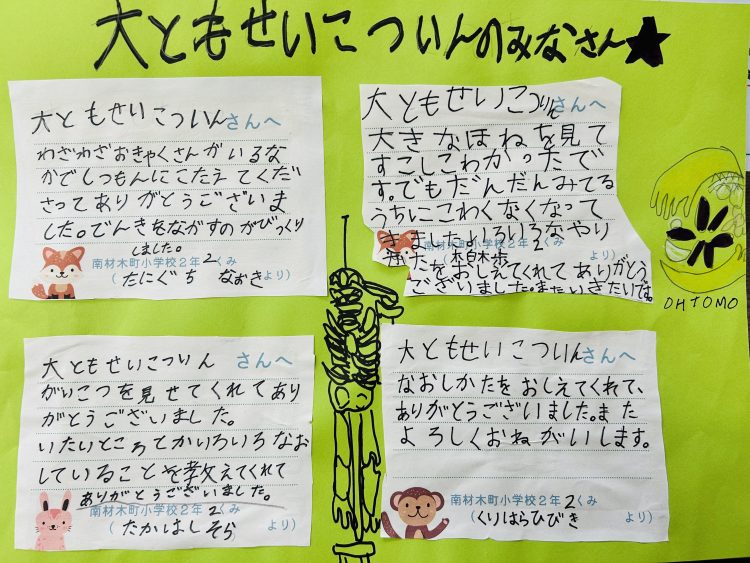 大ともせいこついんのみなさん★
大ともせいこついんさんへ
わざわざおきゃくさんがいるな
かでしつもんにこたえてくだ
さってありがとうございま
した。でんきをながすのがびっくり
しました。
南材木町小学校2年2くみ
(たにぐち なおきより)
大ともせいこついんさんへ
大きなほねを見て
すこしこわかったで
す。でもだんだんみてる
うちにこわくなくなって
きました。いろいろなやり
南材木町小学校2年2くみ
たをおしえてくれてありがとう
ございました。またいきたいです。
OHTOMO
大ともせいこついん さんへ
がいこつを見せてくれてあり
がとうございました。
いたいところとかいろいろなお
していることを教えてくれて
ありがとうございました。
南材木町小学校2年2くみ
(たかはしそらより)
大ともせいこついんさんへ
なおしかたをおしえてくれて、
ありがとうございました。また
よろしくおねがいします。
南材木町小学校2年2くみ
(くりはらひびきより)